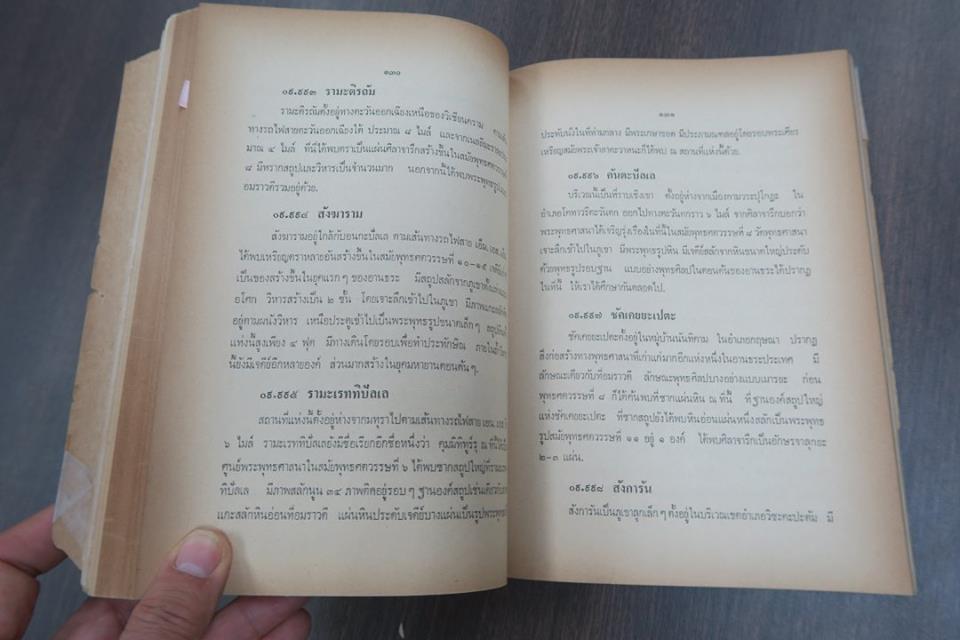 ๑๓๐
๐๙.๙๙๓ รามะคิรถัม
รามะคิรถัมตั้งอยู่ทางตะวันออกเฉียงเหนือของวิเชียนคราม ตามเส้น
ทางรถไฟสายตะวันออกเฉียงใต้ ประมาณ ๘ ไมล์ และจาก
มาณ ๔ ไมล์ ที่นี่ได้พบตราเป็นแผ่นศิลาจารึกสร้างขึ้นในสมัยพุทธศตวรรษที่
๘ มีซากสถูปและวิหารเป็นจำนวนมาก นอกจากนี้ได้พบพระพุทธรูป
อมราวดีรวมอยู่ด้วย.
๐๙.๙๙๔ สังฆาราม
สังฆารามอยู่ใกล้กับอนกะปัลเล ตามเส้นทางรถไฟสาย เอ็ม. เอส. เอ็ม
ได้พบเหรียญตราหลายอันสร้างขึ้นในสมัยพุทธศตวรรษที่ ๑๐-๑๕ เจดีย์
เป็นของสร้างขึ้นในยุคแรก ๆ ของอานธระ มีสถูปสลักจากภูเขาตั้งแต่
อโศก วิหารสร้างเป็น ๒ ชั้น โดยเจาะลึกเข้าไปในภูเขา มีภาพแกะสลัก
อยู่ตามผนังวิหาร เหนือประตูเข้าไปเป็นพระพุทธรูปขนาดเล็ก ๆ สถูป
แห่งนี้สูงเพียง ๔ ฟุต มีทางเดินโดยรอบเพื่อทำประทักษิณ ภายใน
นี้ยังมีเจดีย์อีกหลายองค์ ส่วนมากสร้างในยุคมหายานตอนต้น ๆ.
๐๙.๙๙๕ รามะเรททิปัลเล
สถานที่แห่งนี้ตั้งอยู่ห่างจากมทุราไปตามเส้นทางรถไฟสาย เอน. เอส
๖ ไมล์ รามะเรททิปัลเลยังมีชื่อเรียกอีกชื่อหนึ่งว่า คุมมิทิทูร์รุ ณ ที่นี้
ศูนย์พระพุทธศาสนาในสมัยพุทธศตวรรษที่ ๖ ได้พบซากสถูปใหญ่ที่รามะเรท
ทิปัลเล มีภาพสลักนูน ๓๔ ภาพติดอยู่รอบ ๆ ฐานองค์สถูปเช่นเดียวกับ
แกะสลักหินอ่อนที่อมราวดี แผ่นหินประดับเจดีย์บางแผ่นเป็นรูปพระพุทธ
๑๓๑
ประทับนั่งในที่ท่ามกลาง มีพระเกษารอด มีประภามณฑลอยู่โดยรอบพระเศียร
เหรียญสมัยพระเจ้าสาตะวาหนะก็ได้พบ ณ สถานที่แห่งนี้ด้วย.
๐๙.๙๙๖ คันตะปัลเล
บริเวณนี้เป็นที่ราบเชิงเขา ตั้งอยู่ห่างจากเมืองกามวระปุโกฏะ ใน
อำเภอโคทาวรีตะวันตก ออกไปทางตะวันตกราว ๖ ไมล์ จากศิลาจารึกบอกว่า
พระพุทธศาสนาได้เจริญรุ่งเรืองในที่นี้ในสมัยพุทธศตวรรษที่ ๘ วัดพุทธศาสนา
เจาะลึกเข้าไปในภูเขา มีพระพุทธรูปหิน มีเจดีย์สลักจากหินขนาดใหญ่ประดับ
ด้วยพุทธรูปรอบฐาน แบบอย่างพุทธศิลปในตอนต้นของอานธระได้ปรากฏ
ในที่นี้ ให้เราได้ศึกษากันตลอดไป.
๐๙.๙๙๗ ชัคเคยยะเปตะ
ชัคเคยยะเปตะตั้งอยู่ในหมู่บ้านนันทิคาม ในอำเภอกฤษณา ปรากฏ
สิ่งก่อสร้างทางพุทธศาสนาที่เก่าแก่มากอีกแห่งหนึ่งในอานธระประเทศ มี
ลักษณะเดียวกับที่อมราวดี ลักษณะพุทธศิลปบางอย่างแบบเมารยะ ก่อน
พุทธศตวรรษที่ ๘ ก็ได้ค้นพบที่ซากแผ่นหิน ณ ที่นี้ ที่ฐานองค์สถูปใหญ่
แห่งชัคเคยยะเปตะ ที่ซากสถูปยังได้พบหินอ่อนแผ่นหนึ่งสลักเป็นพระพุทธ
รูปสมัยพุทธศตวรรษที่ ๑๑ อยู่ ๑ องค์ ได้พบศิลาจารึกเป็นอักษรจาลุกยะ
๒-๓ แผ่น.
๐๙.๙๙๘ สังการัน
สังการันเป็นภูเขาลูกเล็ก ๆ ตั้งอยู่ในบริเวณเขตอำเภอวิซะคะปะตัม มี